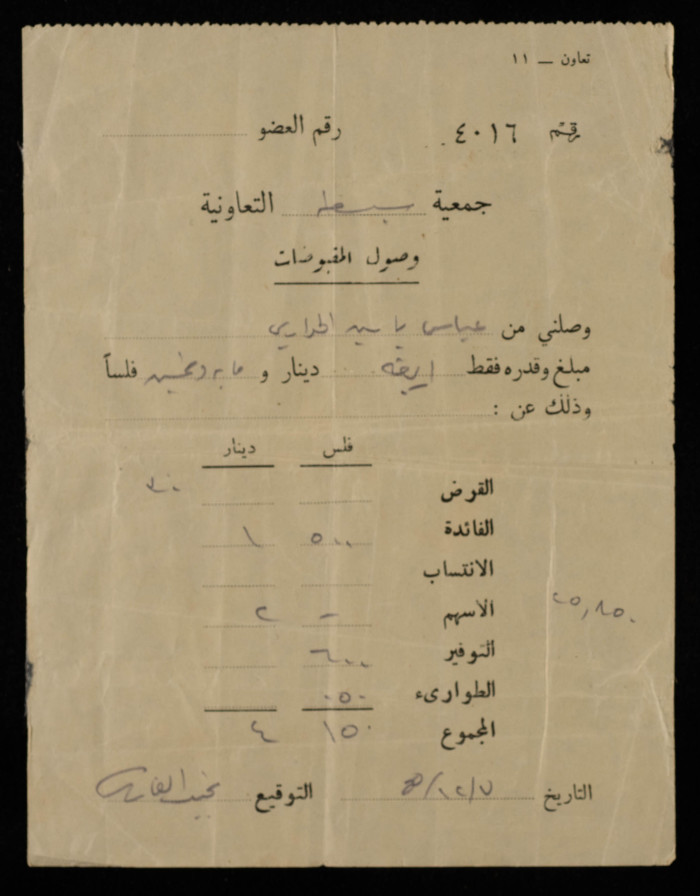 تعاون — ١١
رقم ٤٠١٦ رقم العضو
جمعية التعاونية
وصول المقبوضات
وصلني من عباس ياسين
مبلغ وقدره فقط اربعة دينار و مايه وخمسين فلساً
وذلك عن :
فلس دينار
القرض ٣٠
الفائدة ٥٠٠ ١
الانتساب
الاسهم - ٢
٢٥,٨٥٠
التوفير ٦٠٠
الطوارىء ٠٥٠
المجموع ١٥٠ ٤
التاريخ ٧/١٢/ التوقيع